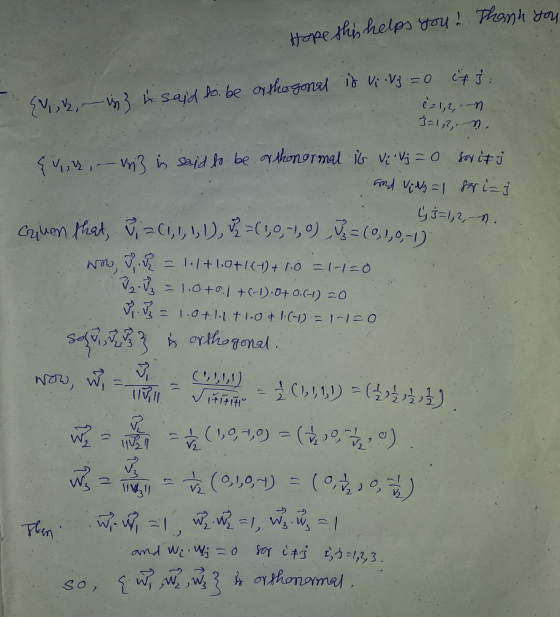 Hope this helps you! Thank you
{v₁, v₂, --- vₙ} is said to be orthogonal if vᵢ·vⱼ = 0 i≠j.
i=1,2,--n
j=1,2,--n.
{v₁, v₂, --- vₙ} is said to be orthonormal if vᵢ·vⱼ = 0 for i≠j
and vᵢ·vⱼ = 1 for i=j
i,j=1,2,--n.
Given that, v⃗₁ = (1,1,1,1), v⃗₂ = (1,0,-1,0), v⃗₃ = (0,1,0,-1)
Now, v⃗₁·v⃗₂ = 1·1+1·0+1(-1)+1·0 = 1-1=0
v⃗₂·v⃗₃ = 1·0+0·1+(-1)·0+0·(-1) = 0
v⃗₁·v⃗₃ = 1·0+1·1+1·0+1·(-1) = 1-1=0
So {v⃗₁, v⃗₂, v⃗₃} is orthogonal.
Now, w⃗₁ = v⃗₁/||v⃗₁|| = (1,1,1,1)/√(1²+1²+1²+1²) = 1/2 (1,1,1,1) = (1/2, 1/2, 1/2, 1/2)
w⃗₂ = v⃗₂/||v⃗₂|| = 1/√2 (1,0,-1,0) = (1/√2, 0, -1/√2, 0)
w⃗₃ = v⃗₃/||v⃗₃|| = 1/√2 (0,1,0,-1) = (0, 1/√2, 0, -1/√2)
Then w⃗₁·w⃗₁ = 1, w⃗₂·w⃗₂ = 1, w⃗₃·w⃗₃ = 1
and wᵢ·wⱼ = 0 for i≠j i,j=1,2,3.
so, {w⃗₁, w⃗₂, w⃗₃} is orthonormal.